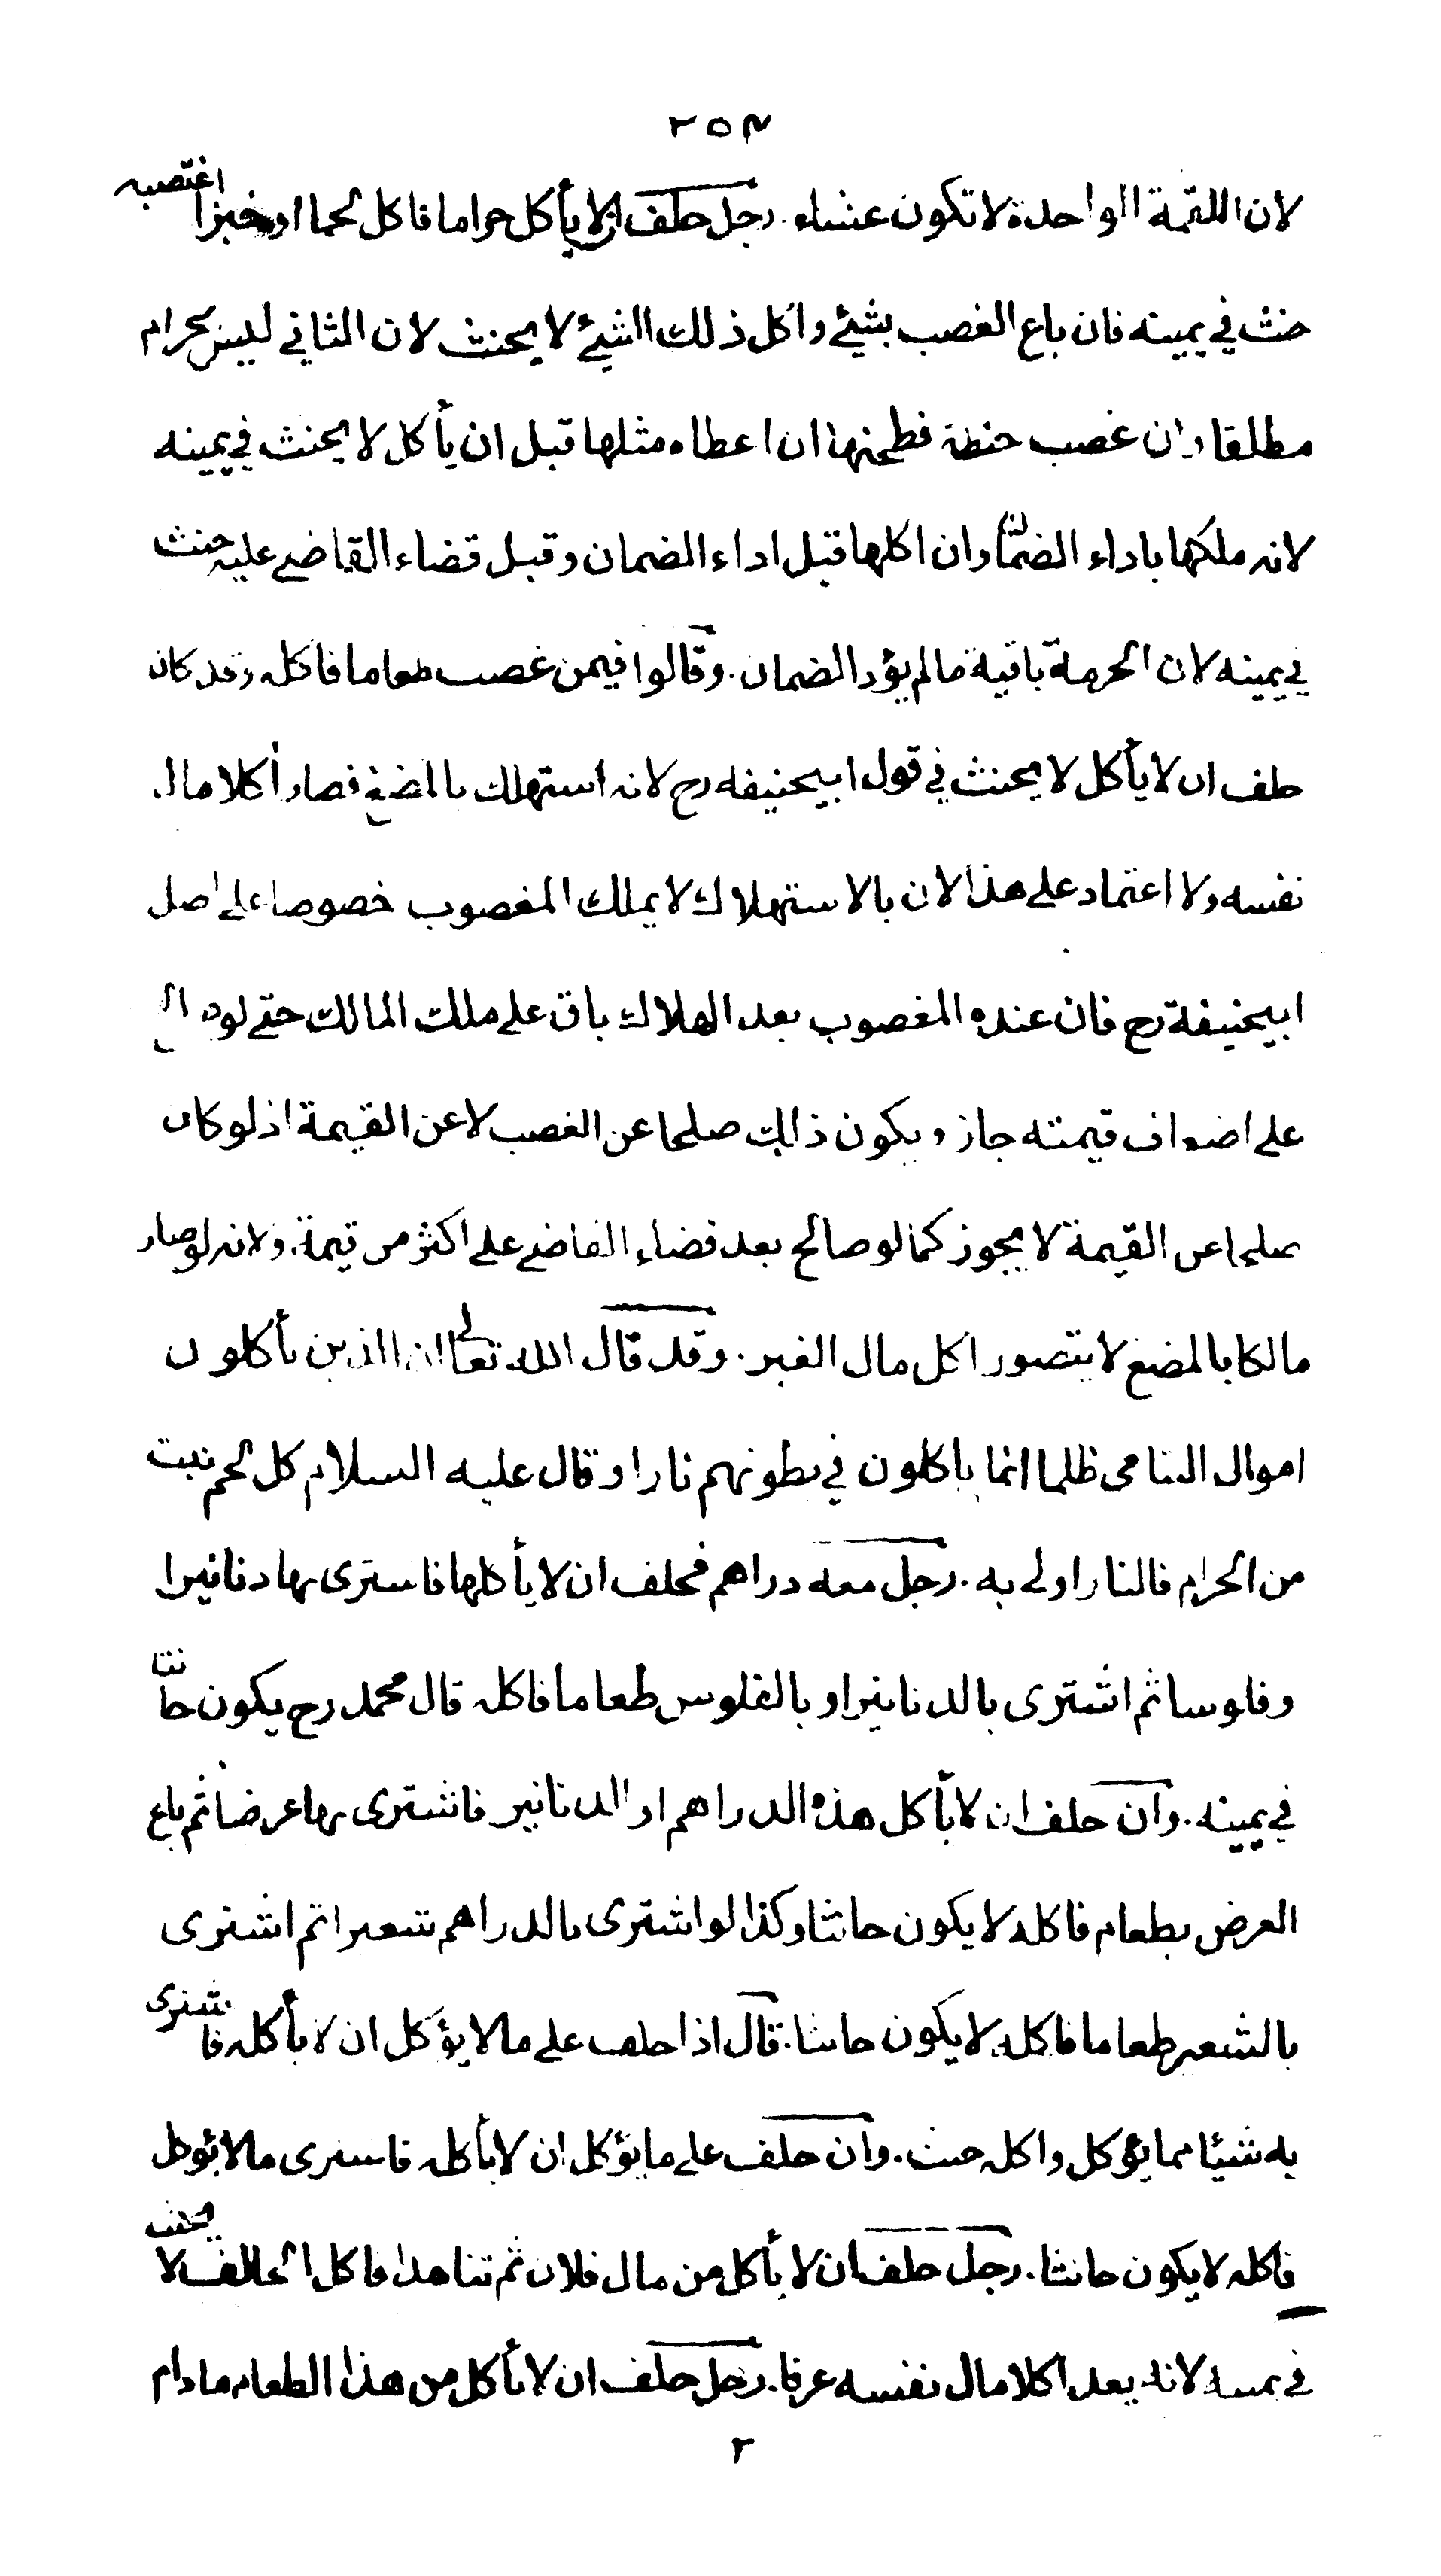 ٢٥٣
لان اللقمة الواحدة لا تكون عشاء. رجل حلف ان لا يأكل حراما فاكل لحما او خبزا اغتصبه
حنث في يمينه فان باع الغصب بشيئ واكل ذلك الشيئ لا يحنث لان الثاني ليس بحرام
مطلقا وان غصب حنطة فطحنها ان اعطاه مثلها قبل ان يأكل لا يحنث في يمينه
لانه ملكها باداء الضمان وان اكلها قبل اداء الضمان وقبل قضاء القاضي عليه حنث
في يمينه لان الحرمة باقية ما لم يؤد الضمان. وقالوا فيمن غصب طعاما فاكله وقد كان
حلف ان لا يأكل لا يحنث في قول ابيحنيفه رح لانه استهلك بالمضغ فصار أكلا مال
نفسه ولا اعتماد على هذا لان بالاستهلاك لا يملك المغصوب خصوصا على اصل
ابيحنيفة رح فان عنده المغصوب بعد الهلاك باق على ملك المالك حتى لو
على اضعاف قيمته جاز ويكون ذلك صلحا عن الغصب لا عن القيمة اذ لو كان
صلحا عن القيمة لا يجوز كما لو صالح بعد قضاء القاضي على اكثر من قيمة. ولانه لو صار
مالكا بالمضغ لا يتصور اكل مال الغير. وقد قال الله تعالى ان الذين يأكلون
اموال اليتامى ظلما انما ياكلون في بطونهم نارا وقال عليه السلام كل لحم نبت
من الحرام فالنار اولى به. رجل معه دراهم فحلف ان لا يأكلها فاشترى بها دنانيرا
وفلوسا ثم اشترى بالدنانير او بالفلوس طعاما فاكله قال محمد رح يكون حانثا
في يمينه. وان حلف ان لا يأكل هذه الدراهم او الدنانير فاشترى بها عرضا ثم باع
العرض بطعام فاكله لا يكون حانثا وكذا لو اشترى بالدراهم شعيرا ثم اشترى
بالشعير طعاما فاكله لا يكون حانثا. قال اذا حلف على ما لا يؤكل ان لا يأكله فاشترى
به شيئا مما يؤكل واكله حنث. وان حلف على ما يؤكل ان لا يأكله فاشترى ما لا يؤكل
فاكله لا يكون حانثا. رجل حلف ان لا يأكل من مال فلان ثم تناهدا فاكل الحالف لا يحنث
في يمينه لانه يعد اكلا مال نفسه عرفا. رجل حلف ان لا يأكل من هذا الطعام ما دام
٢